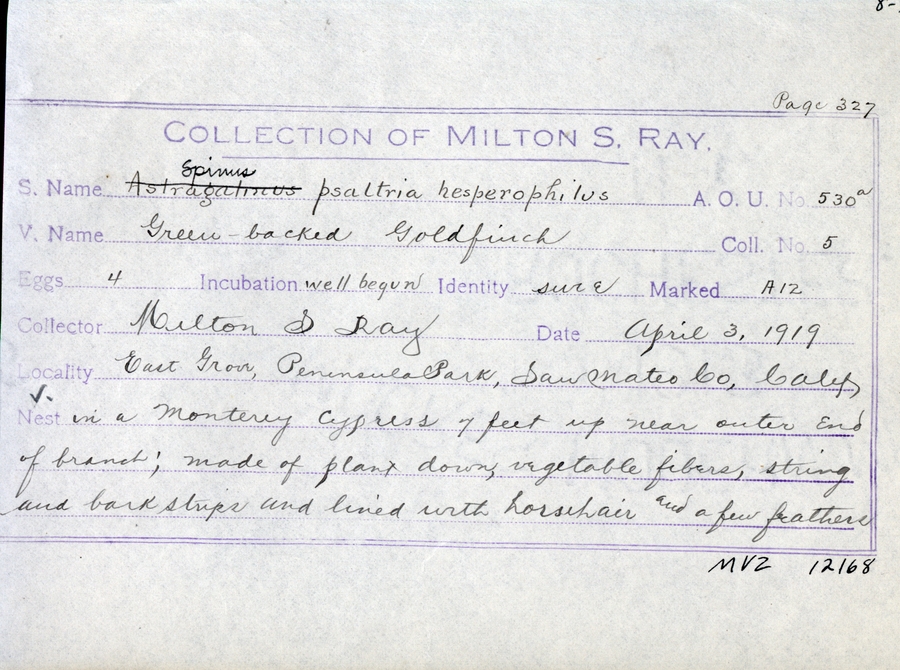 Page 327
COLLECTION OF MILTON S. RAY.
Spinus
S. Name Astragalinus psaltria hesperophilus A. O. U. No. 530a
V. Name Green-backed Goldfinch Coll. No. 5
Eggs 4 Incubation well begun Identity sure Marked A12
Collector Milton S Ray Date April 3, 1919
Locality East Grove, Peninsula Park, San Mateo Co, Calif,
Nest in a Monterey Cypress 7 feet up near outer end
of branch; made of plant down, vegetable fibers, string
and bark strips and lined with horsehair and a few feathers
MVZ 12168